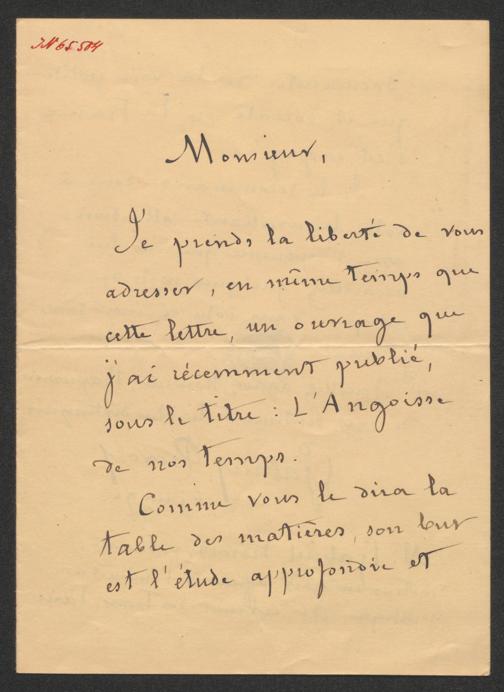 IN 65 504
Monsieur,
Je prends la liberté de vous
adresser, en même temps que
cette lettre, un ouvrage que
j'ai récemment publié,
sous le titre : L'Angoisse
de nos temps.
Comme vous le dira la
table des matières, son but
est l'étude approfondie et